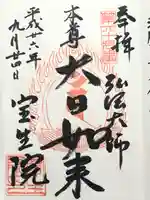 奉拝
弘法大師
本尊
大日如来
平成廿六年
九月廿四日
宝生院